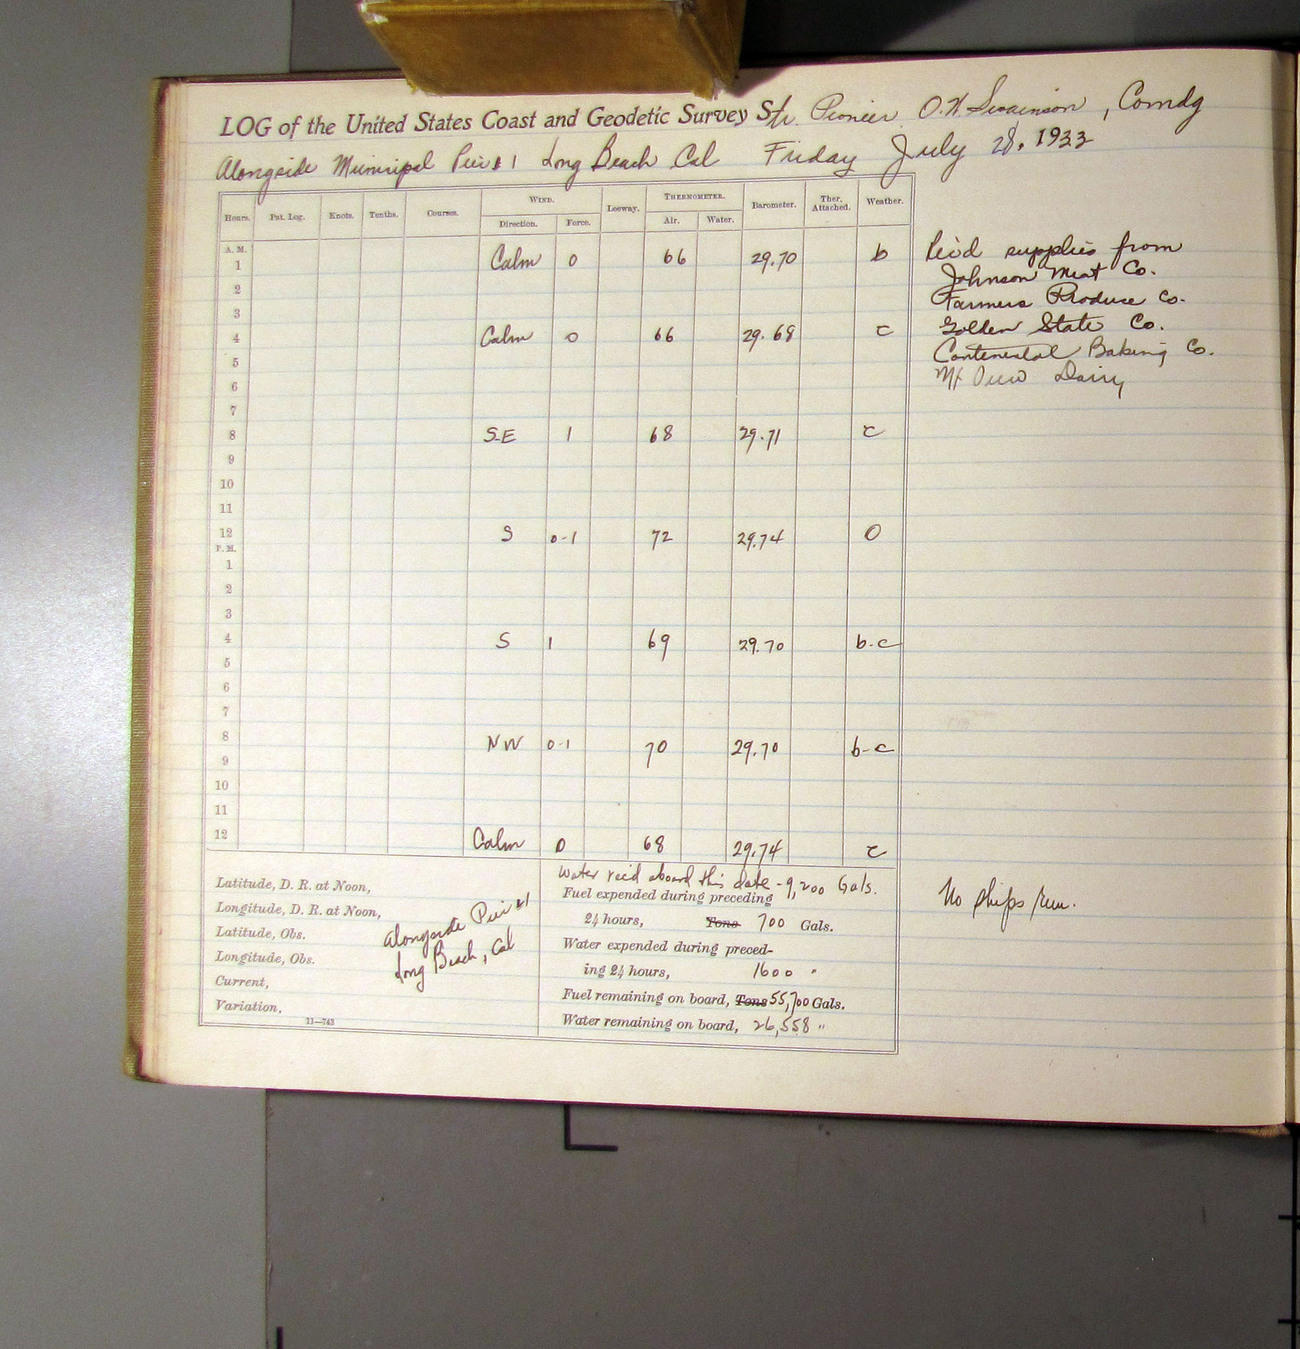 LOG of the United States Coast and Geodetic Survey Str. Pioneer O.W. Swainson, Comdg
Alongside Municipal Pier #1 Long Beach Cal Friday July 28, 1933
Hours. Pat. Log. Knots. Tenths. Courses. WIND. Leeway. THERMOMETER. Barometer. Ther. Attached. Weather.
Direction. Force. Air. Water.
A. M.
1 Calm 0 66 29.70 b
2
3
4 Calm 0 66 29.68 c
5
6
7
8 SE 1 68 29.71 c
9
10
11
12 S 0-1 72 29.74 O
P. M.
1
2
3
4 S 1 69 29.70 b-c
5
6
7
8 NW 0-1 70 29.70 b-c
9
10
11
12 Calm 0 68 29.74 c
Rec'd supplies from
Johnson Meat Co.
Farmers Produce Co.
Golden State Co.
Continental Baking Co.
Mt View Dairy
Latitude, D. R. at Noon,
Longitude, D. R. at Noon,
Latitude, Obs.
Longitude, Obs.
Current,
Variation,
11—743
Alongside Pier #1
Long Beach, Cal
Water rec'd aboard this date - 9,200 Gals.
Fuel expended during preceding
24 hours, Tons 700 Gals.
Water expended during preced-
ing 24 hours, 1600 "
Fuel remaining on board, Tons 55,700 Gals.
Water remaining on board, 26,558 "
No ships run.